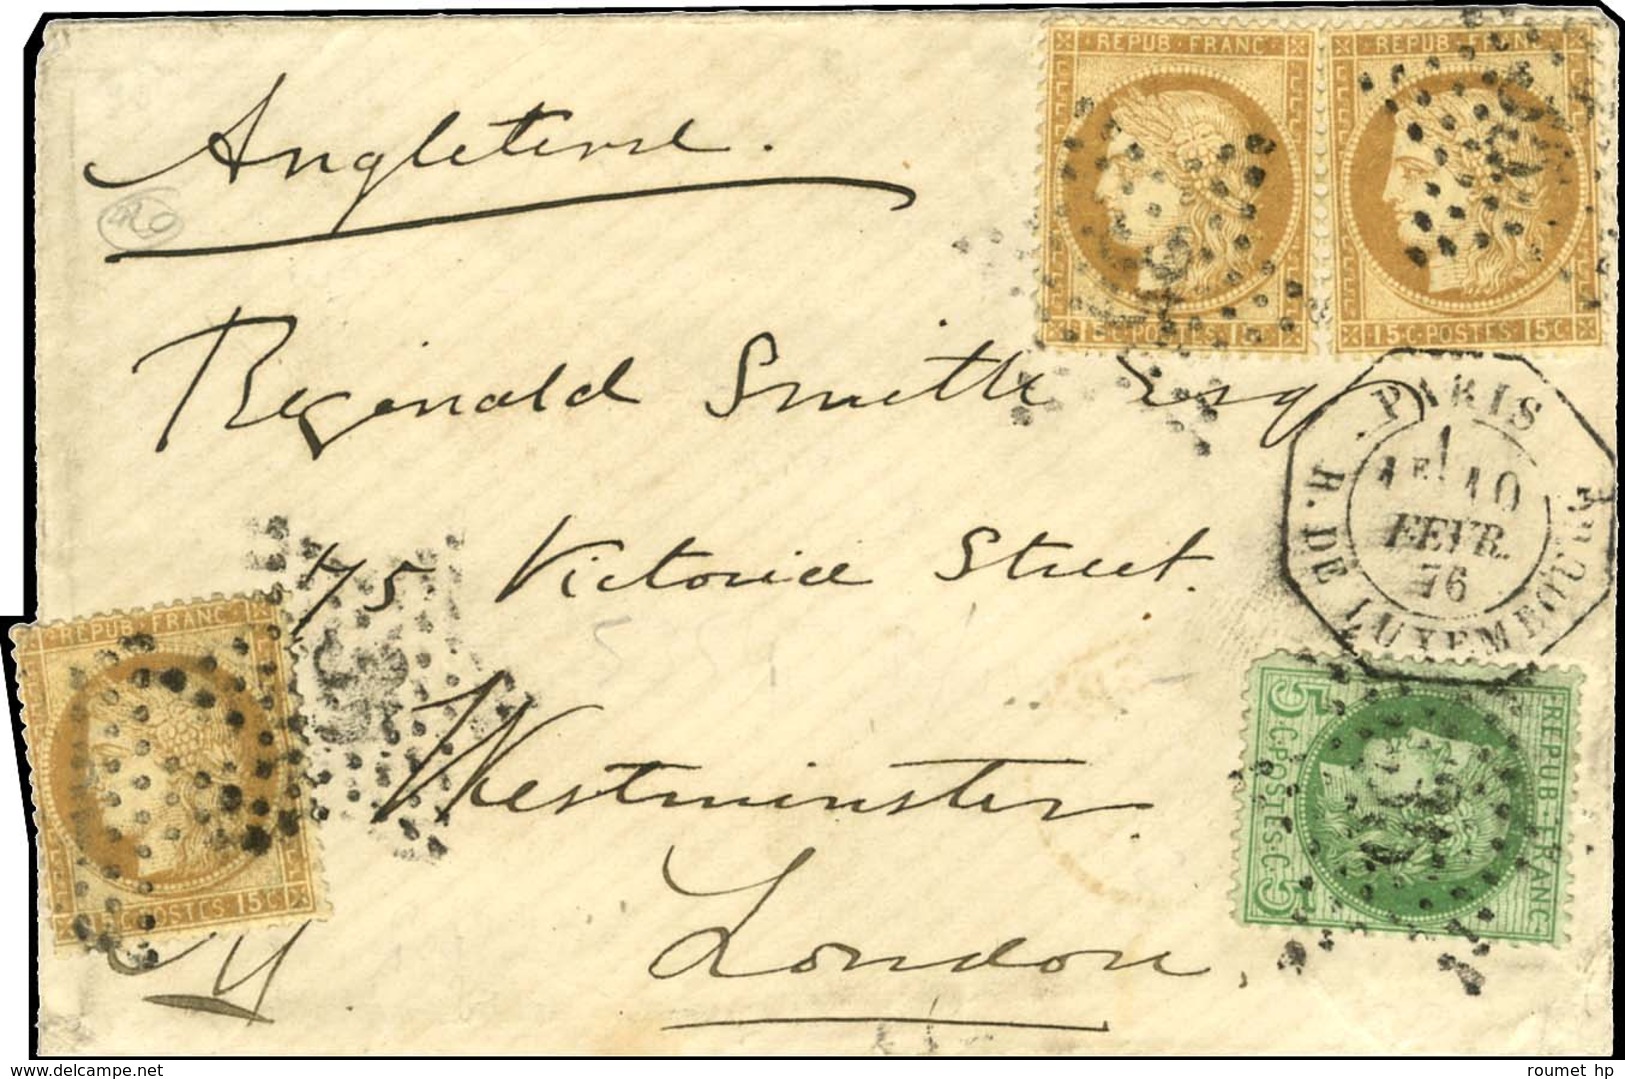 REPUB·FRANC
REPUB·FRANC
Angleterre.
15C·POSTES·15C
15·C·POSTES·15C
Reginald Smith Esqr
PARIS
1E/10
FEVR.
76
R. DE LUXEMBOURG
75 Victoria Street.
REPUB·FRANC
Westminster.
5C·POSTES·C5
REPUB·FRANC
15C·POSTES·15C
London,
www.delcampe.net
roumet hp